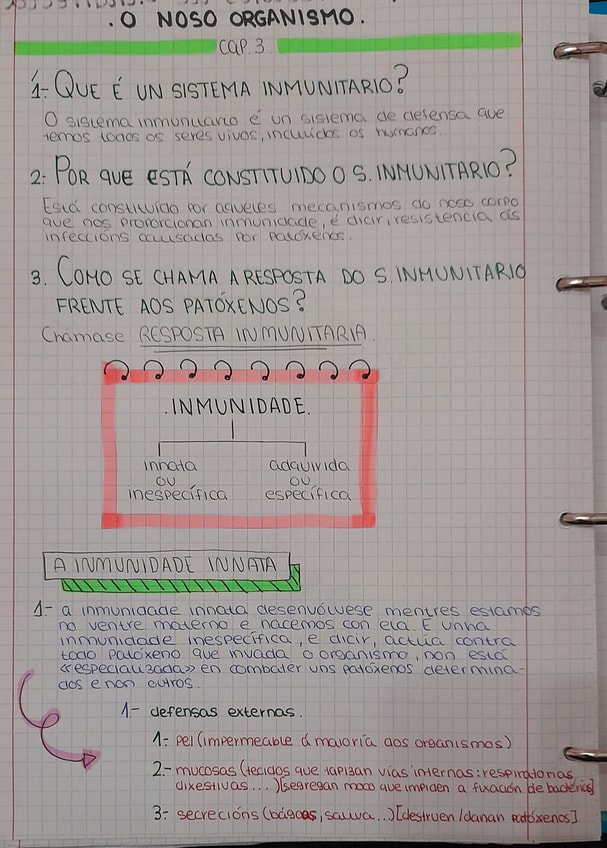 .O NOSO ORGANISMO.
CAP. 3
1- QUE É UN SISTEMA INMUNITARIO?
O sistema inmunitario é un sistema de defensa que
temos todos os seres vivos, incluídos os humanos.
2: POR QUE ESTÁ CONSTITUIDO O S. INMUNITARIO?
Está constituído por aqueles mecanismos do noso corpo
que nos proporcionan inmunidade, é dicir, resistencia ás
infeccións causadas por patóxenos.
3. COMO SE CHAMA A RESPOSTA DO S. INMUNITARIO
FRENTE AOS PATÓXENOS?
Chámase RESPOSTA INMUNITARIA.
.INMUNIDADE.
innata adquirida
ou ou
inespecífica específica
A INMUNIDADE INNATA
1- a inmunidade innata desenvólvese mentres estamos
no ventre materno e nacemos con ela. É unha
inmunidade inespecífica, e dicir, actúa contra
todo patóxeno que invada o organismo, non está
«especializada» en combater uns patóxenos determina-
dos e non outros.
1- defensas externas.
1- pel (impermeable á maioría dos organismos)
2.- mucosas (tecidos que tapizan vías internas: respiratorias,
dixestivas...) [segregan moco que impiden a fixación de bacterias]
3- secrecións (bágoas, saliva...) [destruen/danan patóxenos]